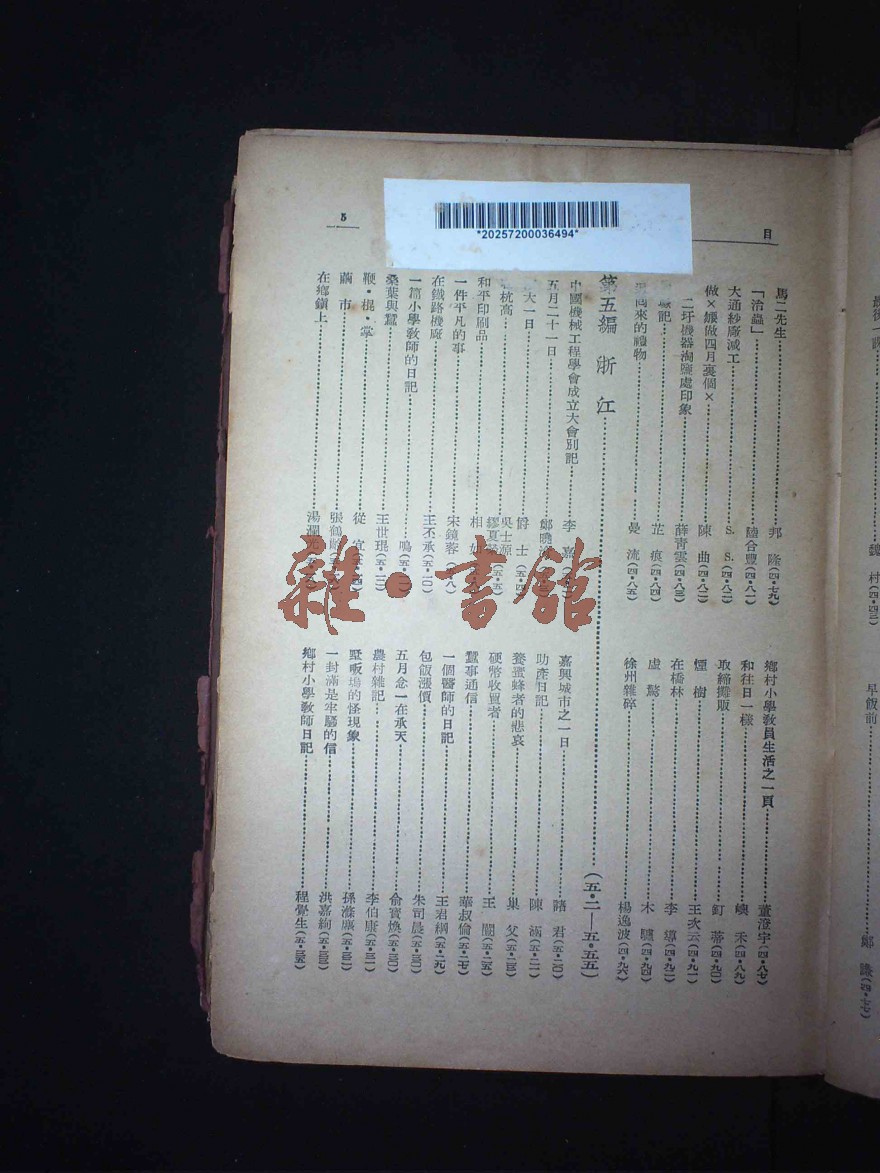 目
5
*20257200036494*
馬二先生……邦 隆(四·七九)
「治蟲」……陸合豐(四·八一)
大通紗廠減工……S. S.(四·八二)
做×孃做四月裏個×……陳 曲(四·八二)
二圩機器淘鹽處印象……薛青雲(四·八三)
記……芷 痕(四·八四)
來的禮物……曼 流(四·八五)
鄉村小學教員生活之一頁……董澄宇(四·八七)
和往日一樣……嶼 禾(四·八九)
取締攤販……釘 蒂(四·九〇)
煙 樹……王次云(四·九一)
在橋林……李 導(四·九二)
虛 驚……木 (四·九四)
徐州雜碎……楊逸波(四·九六)
第五編 浙 江……(五·二—五·五五)
中國機械工程學會成立大會別記……李 嘉
五月二十一日……鄭曉
大一日……爵 士(五·
杭高……吳士源 繆夏(五·
和平印刷品……相 如
一件平凡的事……宋鏡蓉(·八)
在鐵路機廠……王不承(五·一〇)
一篇小學教師的日記……鳴(五·
桑葉與蠶……王世琨(五·一二)
鞭·棍·掌……從 宜
繭 市……張鶴
在鄉鎮上……湯
嘉興城市之一日……諸 君(五·二〇)
助產日記……陳 涵(五·二一)
養蜜蜂者的悲哀……巢 父(五·二三)
硬幣收買者……王 闓(五·二五)
蠶事通信……華叔倫(五·二七)
一個醫師的日記……王君綱(五·二九)
包飯漲價……朱司晨(五·三〇)
五月念一在承天……俞寶煥(五·三一)
農村雜記……李伯康(五·三二)
墅畈塢的怪現象……孫滌塵(五·三三)
一封滿是牢騷的信……洪嘉絢(五·三三)
鄉村小學教師日記……程覺生(五·三五)
魏 村(四·四三)
早飯前……鄭 謙(四·七七)
雜·書館